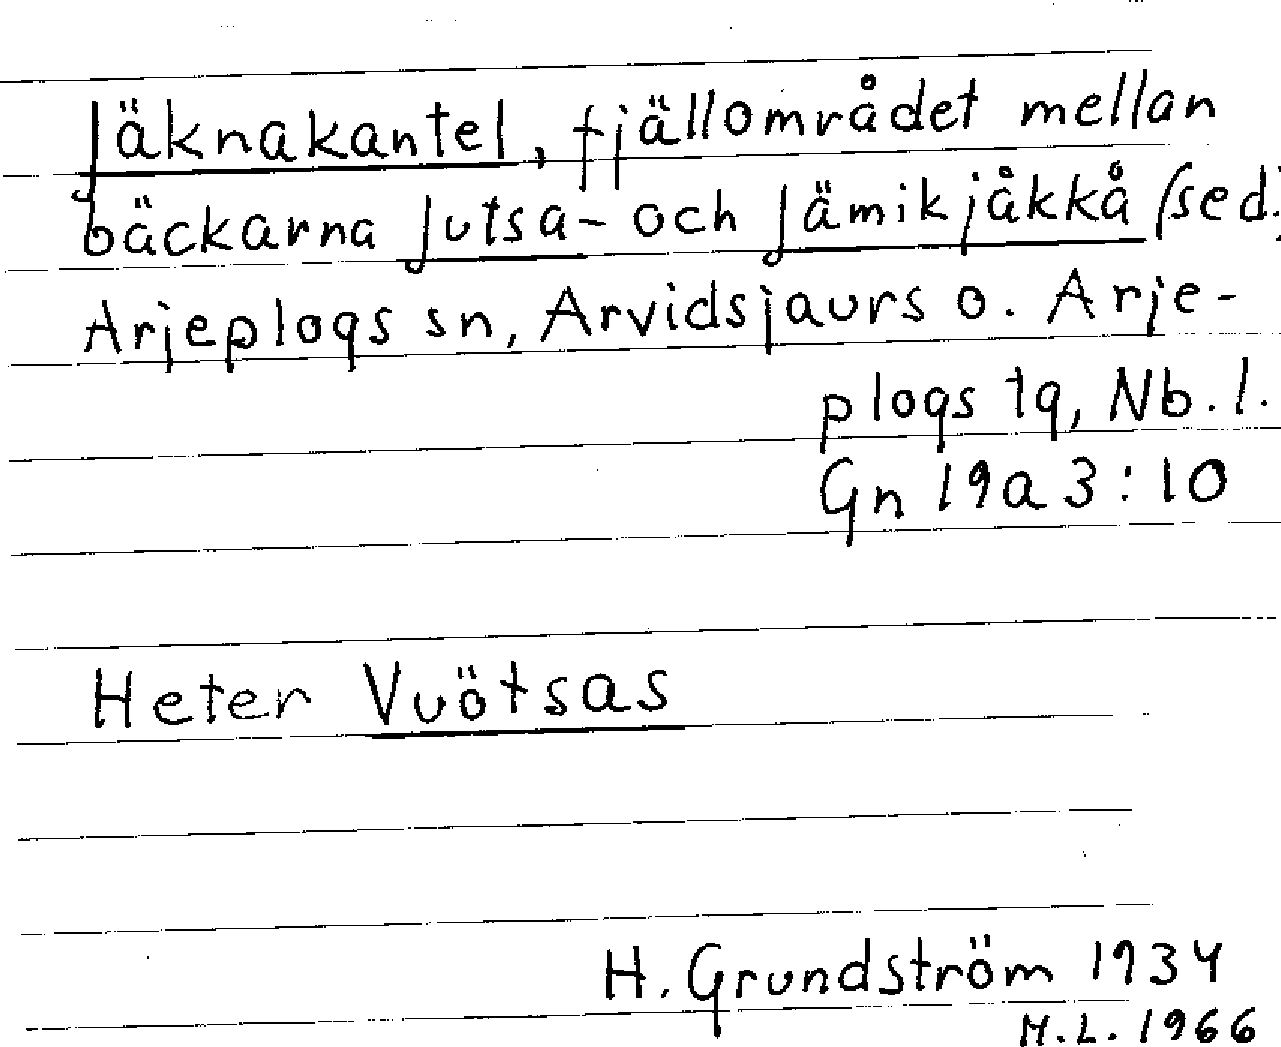 Jäknakantel, fjällområdet mellan
bäckarna Jutsa- och Jämikjåkkå (sed.)
Arjeplogs sn, Arvidsjaurs o. Arje-
plogs tg, Nb. l.
Gn 19a 3:10
Heter Vuötsas
H. Grundström 1934
M.L. 1966